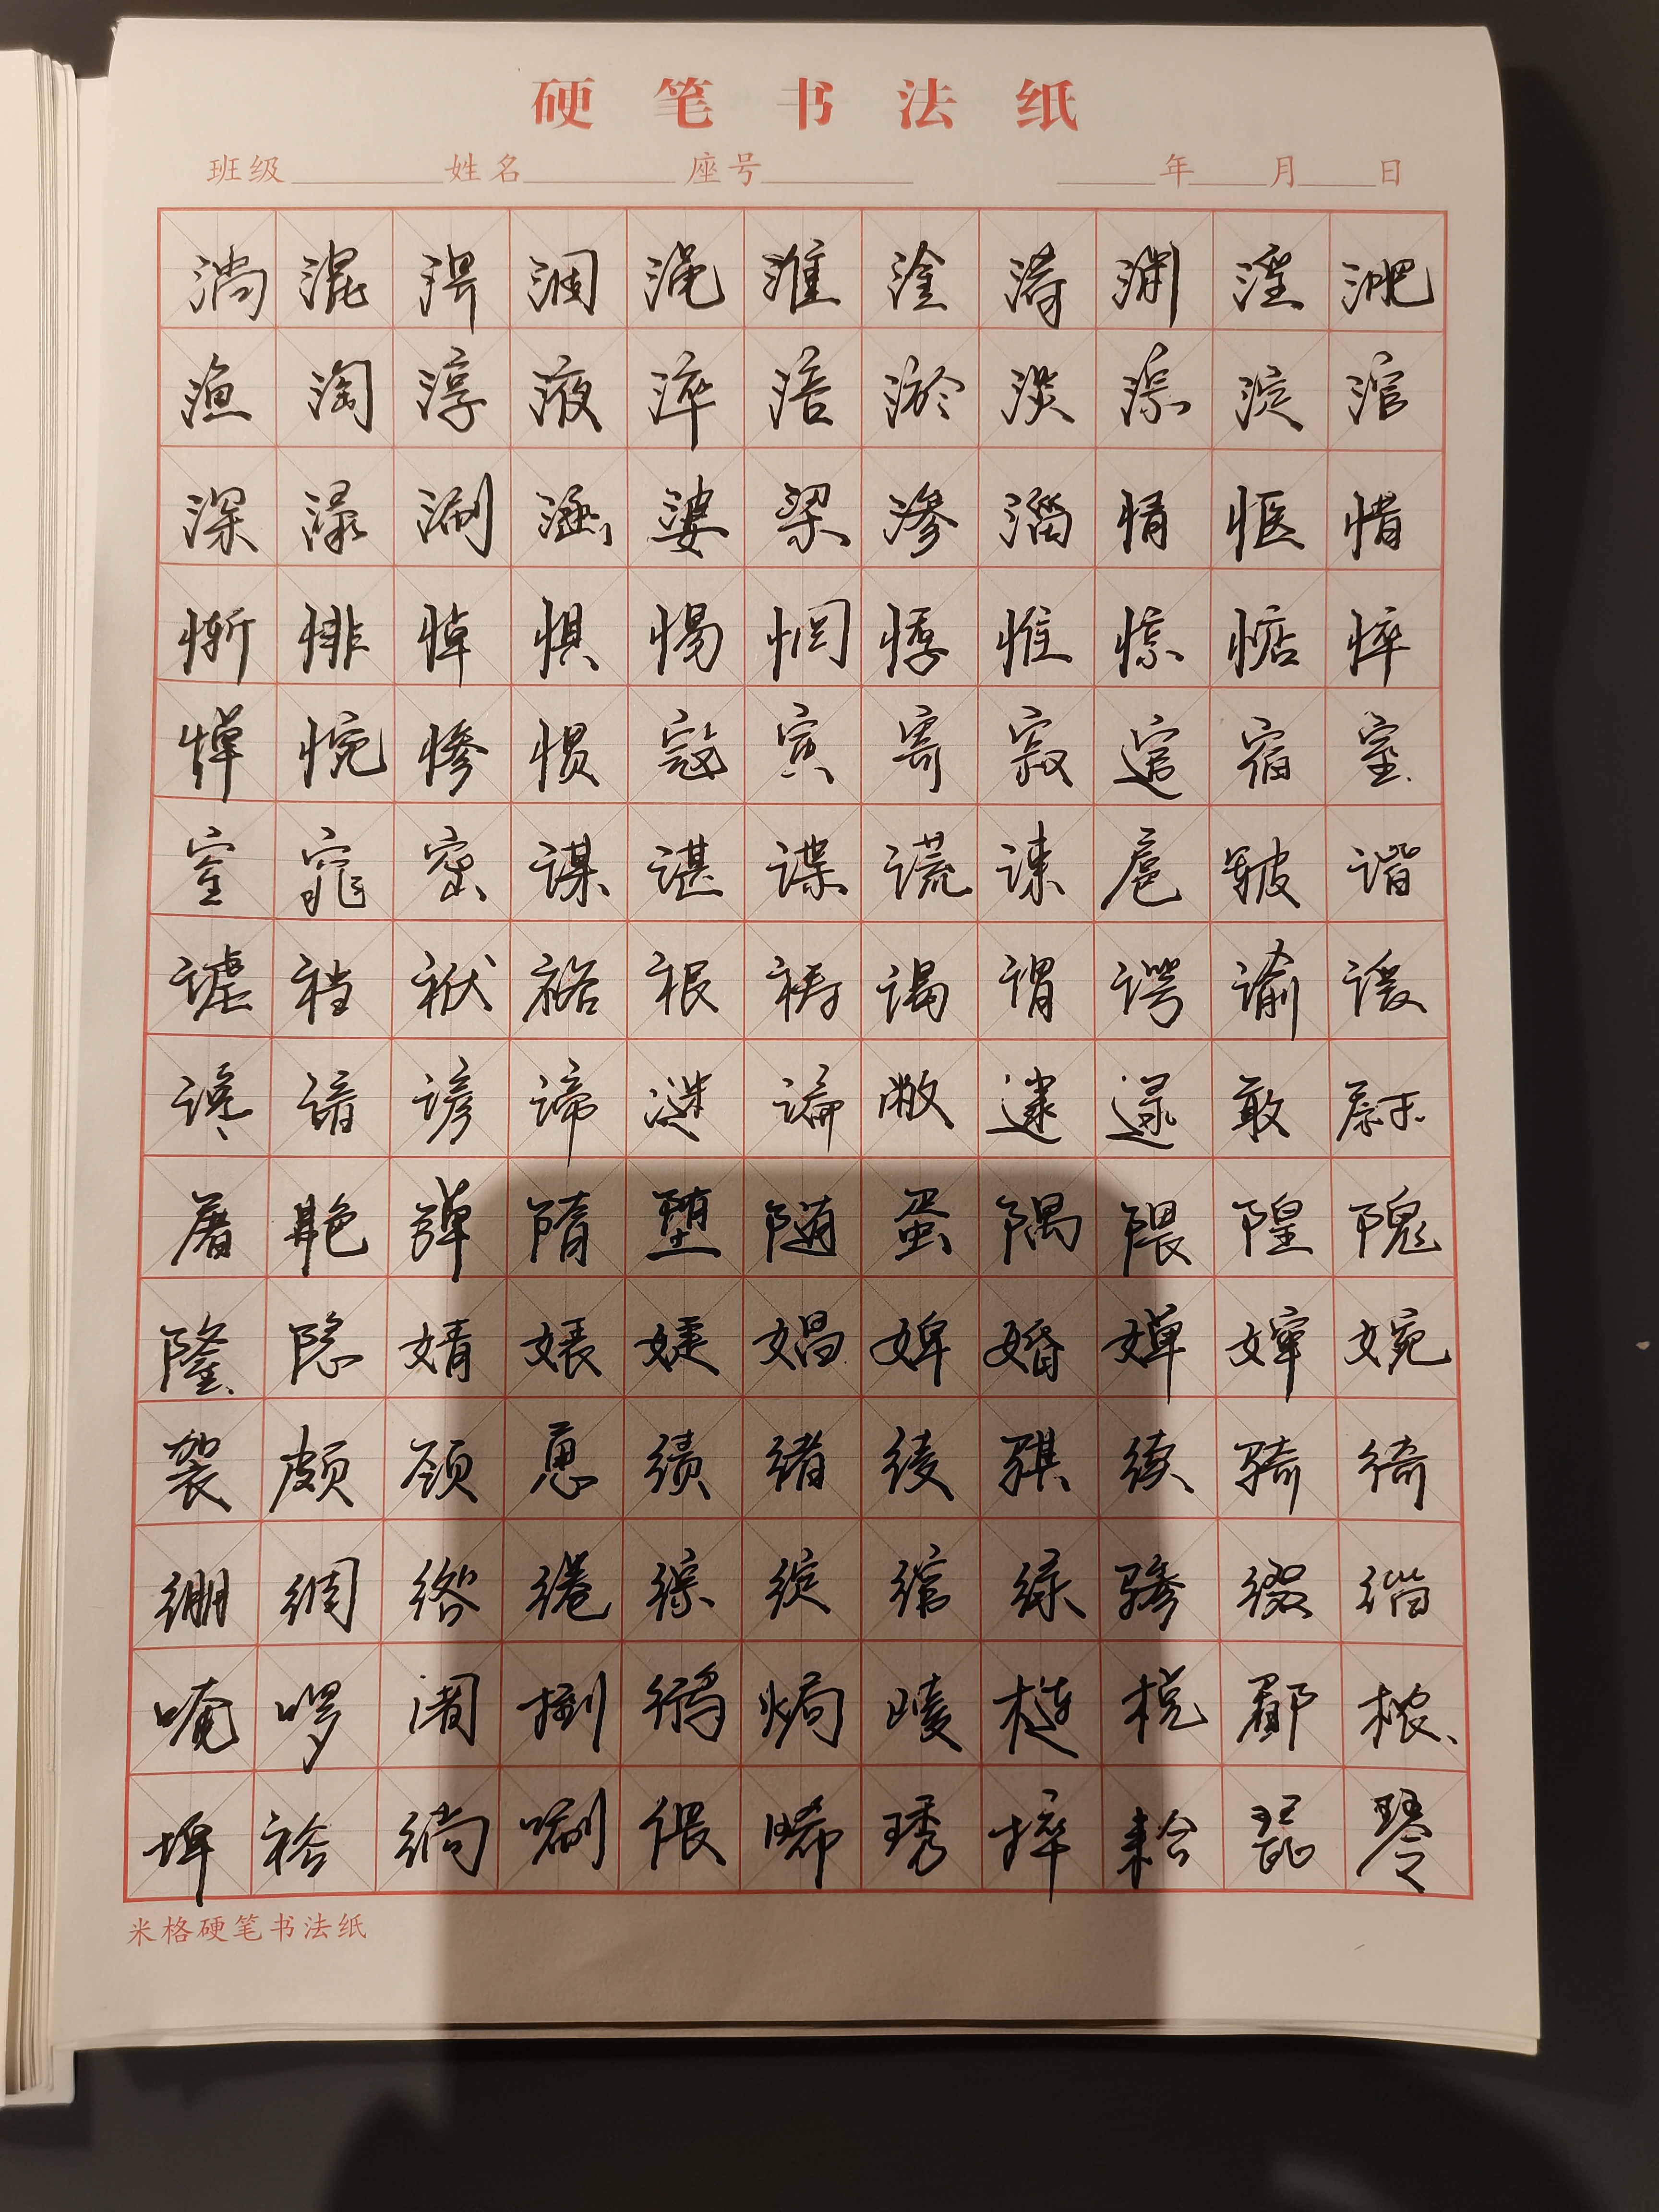 硬笔书法纸
班级 姓名 座号 年 月 日
淌混淠涸渑淮淦淆渊淫淝
渔淘淳液淬涪淤淡淙淀涫
深渌涮涵婆梁渗淄情惬惜
惭悱悼惧惕惘悸惟惊惦悴
惮惋惨惯寇寅寄寂逭宿窒
窑窕密谋谌谍谎谏扈皲谐
谑裆袱祸裉祷谒谓谔谕谖
谗谙谚谛谜谝敝逮逯敢尉
屠艴弹隋堕随蛋隅隈隍隗
隆隐婧婊婕娼婢婚婵婶婉
袈颇颈恿绩绪绫骐续骑绮
绷绸绺绻综绽绾绿骖缀缁
唵啰阇捌鸻焗崚梿棁鄑棯
埤裕绱唰偎晞琇捽耠琵琴
米格硬笔书法纸